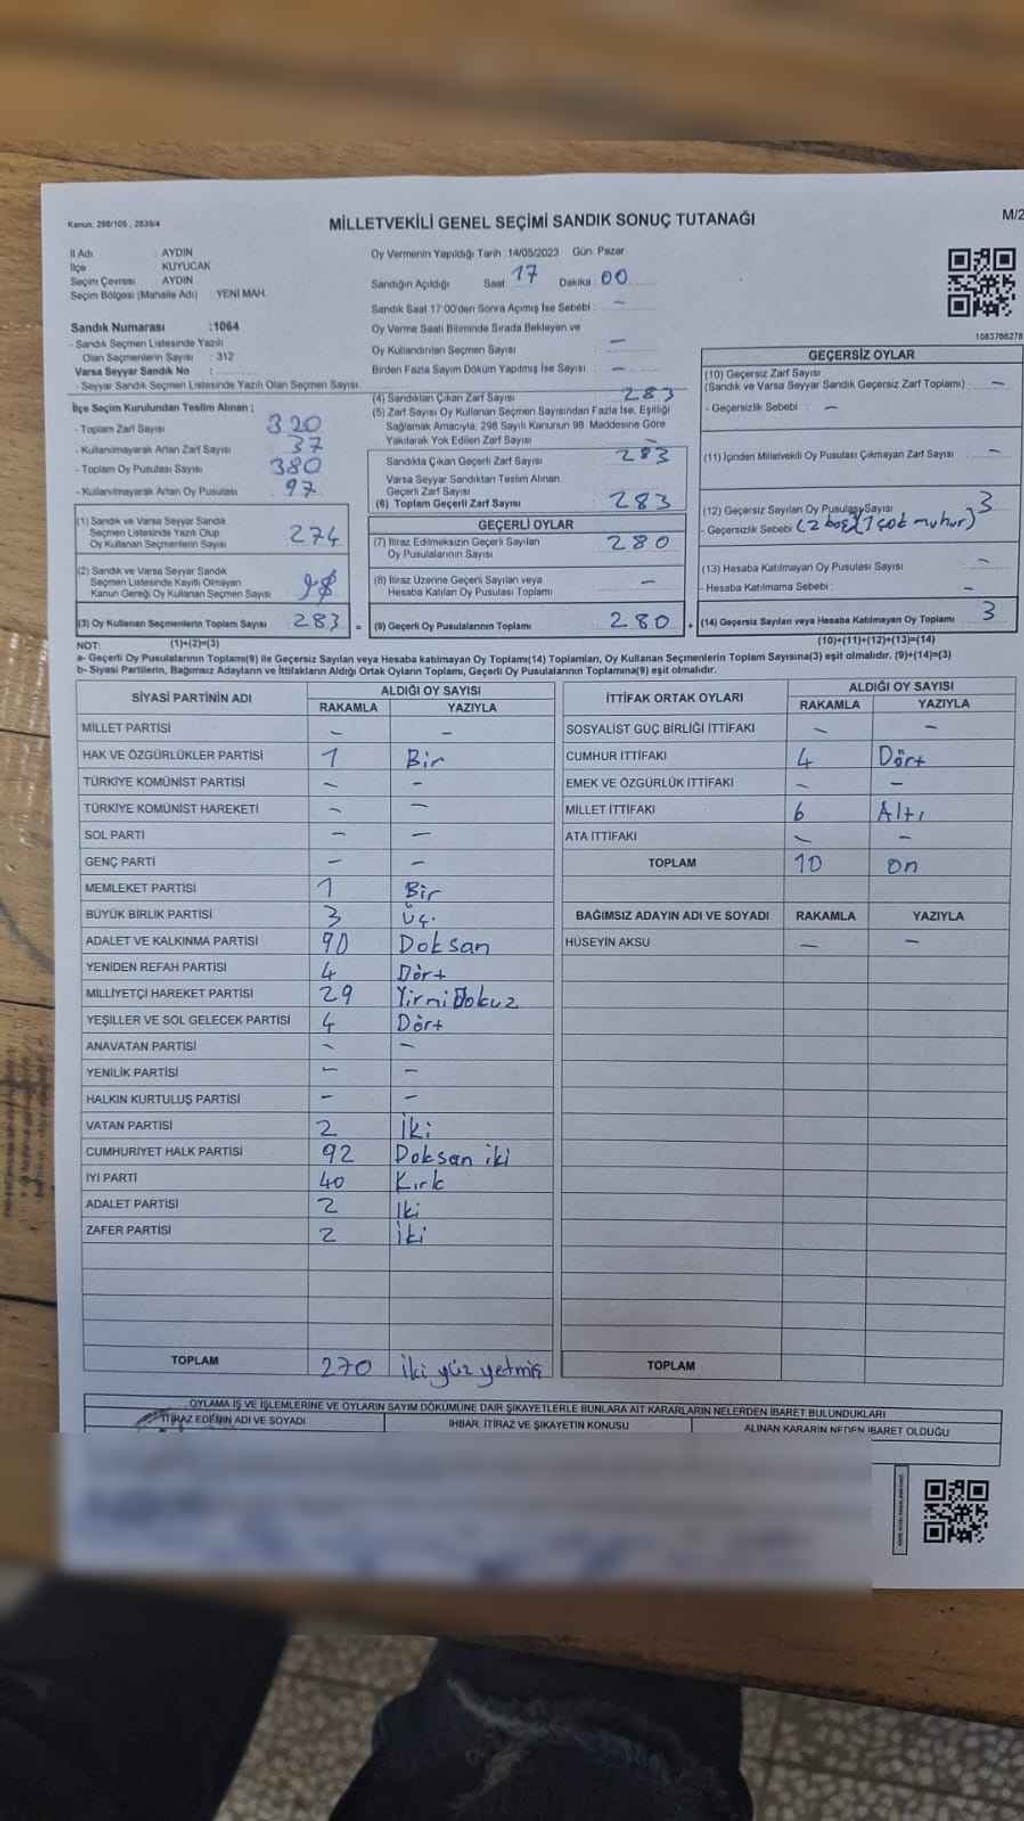 Kanun: 298/105 , 2839/4
MİLLETVEKİLİ GENEL SEÇİMİ SANDIK SONUÇ TUTANAĞI
M/2
İl Adı : AYDIN
İlçe : KUYUCAK
Seçim Çevresi : AYDIN
Seçim Bölgesi (Mahalle Adı) : YENİ MAH.
Oy Vermenin Yapıldığı Tarih :14/05/2023 Gün: Pazar
Sandığın Açıldığı Saat 17 Dakika 00
Sandık Saat 17:00'den Sonra Açılmış İse Sebebi : -
Oy Verme Saati Bitiminde Sırada Bekleyen ve
Oy Kullandırılan Seçmen Sayısı -
Birden Fazla Sayım Döküm Yapılmış İse Sayısı -
Sandık Numarası :1064
- Sandık Seçmen Listesinde Yazılı
Olan Seçmenlerin Sayısı : 312
Varsa Seyyar Sandık No :
- Seyyar Sandık Seçmen Listesinde Yazılı Olan Seçmen Sayısı:
İlçe Seçim Kurulundan Teslim Alınan ;
- Toplam Zarf Sayısı 320
- Kullanılmayarak Artan Zarf Sayısı 37
- Toplam Oy Pusulası Sayısı 380
- Kullanılmayarak Artan Oy Pusulası 97
(1) Sandık ve Varsa Seyyar Sandık
Seçmen Listesinde Yazılı Olup
Oy Kullanan Seçmenlerin Sayısı 274
(2) Sandık ve Varsa Seyyar Sandık
Seçmen Listesinde Kayıtlı Olmayan
Kanun Gereği Oy Kullanan Seçmen Sayısı
(3) Oy Kullanan Seçmenlerin Toplam Sayısı 283 =
(1)+(2)=(3)
(4) Sandıktan Çıkan Zarf Sayısı 283
(5) Zarf Sayısı Oy Kullanan Seçmen Sayısından Fazla İse, Eşitliği
Sağlamak Amacıyla; 298 Sayılı Kanunun 98. Maddesine Göre
Yakılarak Yok Edilen Zarf Sayısı -
Sandıkta Çıkan Geçerli Zarf Sayısı 283
Varsa Seyyar Sandıktan Teslim Alınan
Geçerli Zarf Sayısı
(6) Toplam Geçerli Zarf Sayısı 283
GEÇERLİ OYLAR
(7) İtiraz Edilmeksizin Geçerli Sayılan
Oy Pusulalarının Sayısı 280
(8) İtiraz Üzerine Geçerli Sayılan veya
Hesaba Katılan Oy Pusulası Toplamı -
(9) Geçerli Oy Pusulalarının Toplamı 280 +
1083706278
GEÇERSİZ OYLAR
(10) Geçersiz Zarf Sayısı
(Sandık ve Varsa Seyyar Sandık Geçersiz Zarf Toplamı) -
- Geçersizlik Sebebi : -
(11) İçinden Milletvekili Oy Pusulası Çıkmayan Zarf Sayısı -
(12) Geçersiz Sayılan Oy Pusulası Sayısı 3
- Geçersizlik Sebebi (2 boş) (1 çok muhur)
(13) Hesaba Katılmayan Oy Pusulası Sayısı -
- Hesaba Katılmama Sebebi : -
(14) Geçersiz Sayılan veya Hesaba Katılmayan Oy Toplamı 3
(10)+(11)+(12)+(13)=(14)
NOT:
a- Geçerli Oy Pusulalarının Toplamı(9) ile Geçersiz Sayılan veya Hesaba katılmayan Oy Toplamı(14) Toplamları, Oy Kullanan Seçmenlerin Toplam Sayısına(3) eşit olmalıdır. (9)+(14)=(3)
b- Siyasi Partilerin, Bağımsız Adayların ve İttifakların Aldığı Ortak Oyların Toplamı, Geçerli Oy Pusulalarının Toplamına(9) eşit olmalıdır.
SİYASİ PARTİNİN ADI ALDIĞI OY SAYISI
RAKAMLA YAZIYLA
MİLLET PARTİSİ - -
HAK VE ÖZGÜRLÜKLER PARTİSİ 1 Bir
TÜRKİYE KOMÜNİST PARTİSİ - -
TÜRKİYE KOMÜNİST HAREKETİ - -
SOL PARTİ - -
GENÇ PARTİ - -
MEMLEKET PARTİSİ 1 Bir
BÜYÜK BİRLİK PARTİSİ 3 Üç.
ADALET VE KALKINMA PARTİSİ 90 Doksan
YENİDEN REFAH PARTİSİ 4 Dört
MİLLİYETÇİ HAREKET PARTİSİ 29 YirmiDokuz
YEŞİLLER VE SOL GELECEK PARTİSİ 4 Dört
ANAVATAN PARTİSİ - -
YENİLİK PARTİSİ - -
HALKIN KURTULUŞ PARTİSİ - -
VATAN PARTİSİ 2 İki
CUMHURİYET HALK PARTİSİ 92 Doksan iki
İYİ PARTİ 40 Kırk
ADALET PARTİSİ 2 İki
ZAFER PARTİSİ 2 İki
TOPLAM 270 İki yüz yetmiş
İTTİFAK ORTAK OYLARI ALDIĞI OY SAYISI
RAKAMLA YAZIYLA
SOSYALİST GÜÇ BİRLİĞİ İTTİFAKI - -
CUMHUR İTTİFAKI 4 Dört
EMEK VE ÖZGÜRLÜK İTTİFAKI - -
MİLLET İTTİFAKI 6 Altı
ATA İTTİFAKI - -
TOPLAM 10 on
BAĞIMSIZ ADAYIN ADI VE SOYADI RAKAMLA YAZIYLA
HÜSEYİN AKSU - -
TOPLAM
OYLAMA İŞ VE İŞLEMLERİNE VE OYLARIN SAYIM DÖKÜMÜNE DAİR ŞİKAYETLERLE BUNLARA AİT KARARLARIN NELERDEN İBARET BULUNDUKLARI
İTİRAZ EDENİN ADI VE SOYADI İHBAR, İTİRAZ VE ŞİKAYETİN KONUSU ALINAN KARARIN NEDEN İBARET OLDUĞU